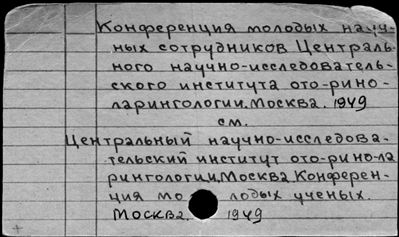 Конференция молодых науч-
ных сотрудников Централь-
ного научно-исследователь-
ского института ото-рино-
ларингологии. Москва. 1949
см.
Центральный научно-исследова-
тельский институт ото-рино-ла
рингологии, Москва Конферен-
ция мо лодых ученых.
Москва. 1949